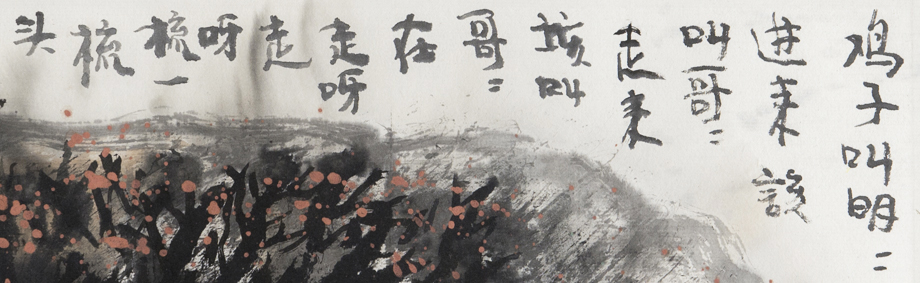 鸡子叫明〻
进来該
叫哥〻
走来
垓叫
哥〻
在
走呀
走
呀
梳一
梳
头